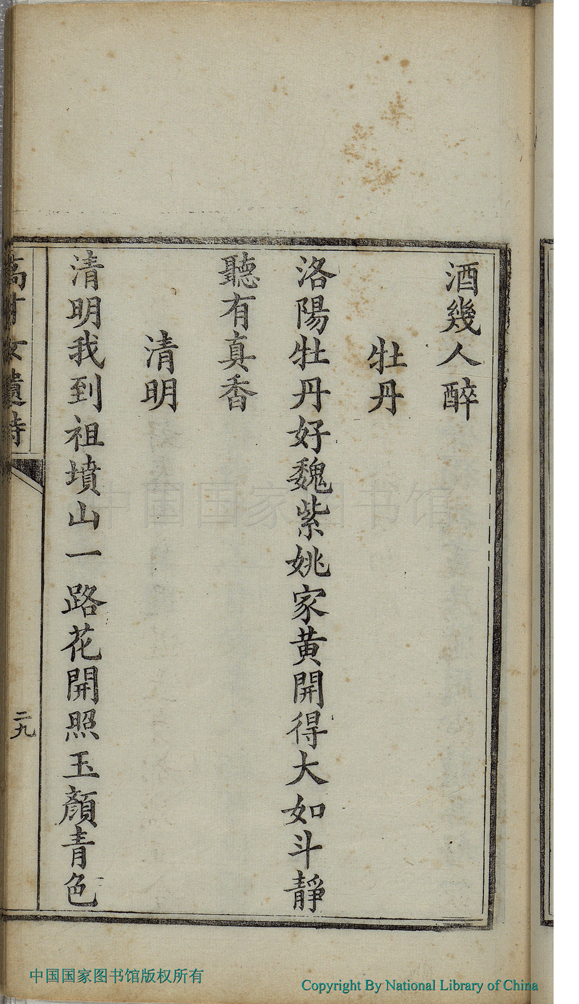 酒幾人醉
牡丹
洛陽牡丹好魏紫姚家黃開得大如斗靜
聽有真香
清明
清明我到祖墳山一路花開照玉顏青色
二九
中国国家图书馆
中国国家图书馆版权所有
Copyright By National Library of China